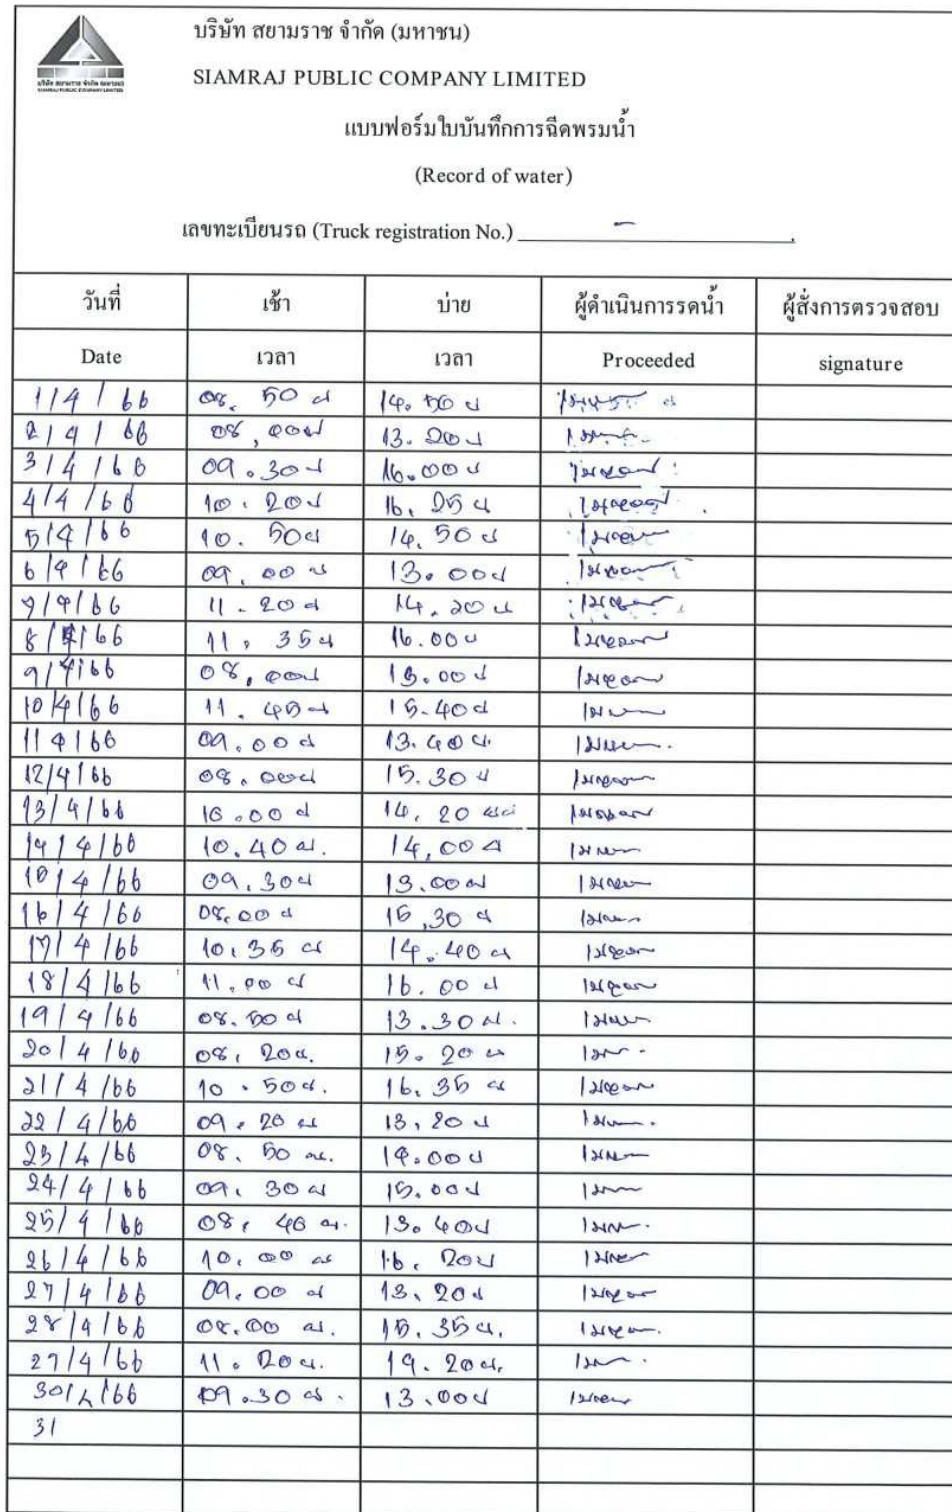 บริษัท สยามราช จำกัด (มหาชน)
บริษัท สยามราช จำกัด (มหาชน)
SIAMRAJ PUBLIC COMPANY LIMITED
SIAMRAJ PUBLIC COMPANY LIMITED
แบบฟอร์มใบบันทึกการฉีดพรมน้ำ
(Record of water)
เลขทะเบียนรถ (Truck registration No.) -
วันที่ เช้า บ่าย ผู้ดำเนินการรดน้ำ ผู้สั่งการตรวจสอบ
Date เวลา เวลา Proceeded signature
1/4/66 08.50 น 14.50 น
2/4/66 08.00 น 13.20 น
3/4/66 09.30 น 16.00 น
4/4/66 10.20 น 16.25 น
5/4/66 10.50 น 14.50 น
6/4/66 09.00 น 13.00 น
7/4/66 11.20 น 14.20 น
8/4/66 11.35 น 16.00 น
9/4/66 08.00 น 13.00 น
10/4/66 11.45 น 15.40 น
11/4/66 09.00 น 13.40 น.
12/4/66 08.00 น 15.30 น
13/4/66 10.00 น 14.20 น
14/4/66 10.40 น. 14.00 น
15/4/66 09.30 น 13.00 น
16/4/66 08.00 น 15.30 น
17/4/66 10.35 น 14.40 น
18/4/66 11.00 น 16.00 น
19/4/66 08.50 น 13.30 น.
20/4/66 08.20 น. 15.20 น
21/4/66 10.50 น. 16.35 น
22/4/66 09.20 น 13.20 น
23/4/66 08.50 น. 14.00 น
24/4/66 09.30 น 15.00 น
25/4/66 08.45 น. 13.40 น
26/4/66 10.00 น 16.20 น
27/4/66 09.00 น 13.20 น
28/4/66 08.00 น. 15.35 น.
29/4/66 11.20 น. 14.20 น.
30/4/66 09.30 น. 13.00 น
31